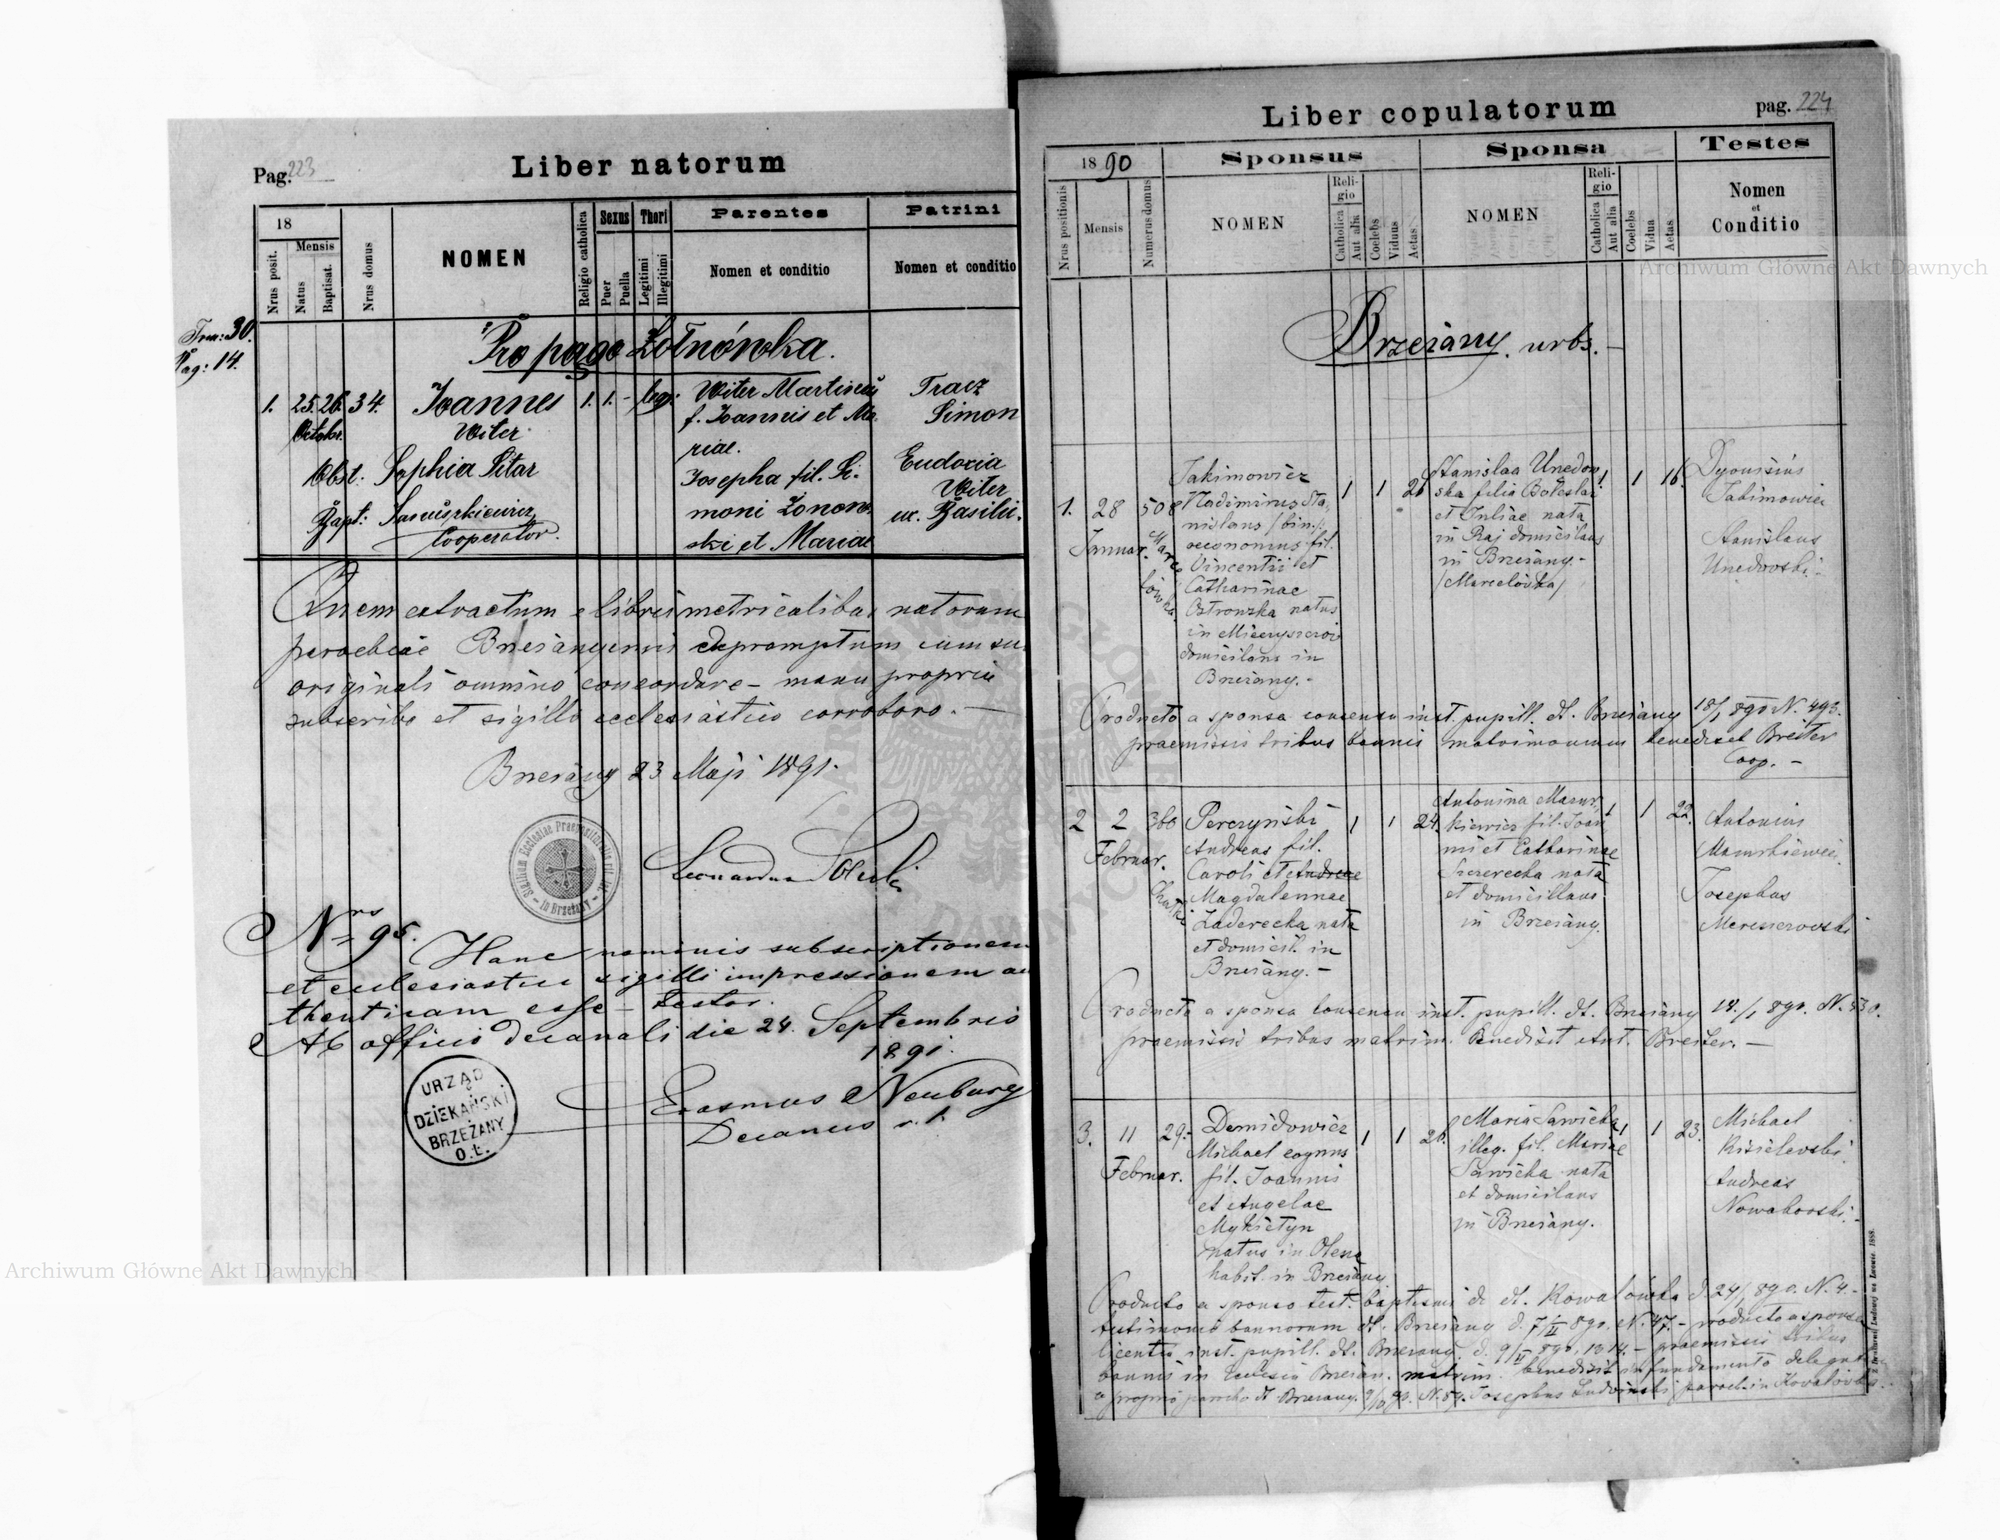 Pag. 223
Liber natorum
18
Nrus posit.
Mensis
Natus
Baptisat.
Nrus domus
NOMEN
Religio catholica
Sexus
Puer
Puella
Thori
Legitimi
Illegitimi
Parentes
Nomen et conditio
Patrini
Nomen et conditio
Pag: 14.
Pro pago Żołnówka.
1. 25. 26. 34. Joannes 1. 1. - leg: Witer Martinus Tracz
Octobr. Witer f. Joannis et Ma- Simon
riae.
Obst: Sophia Sitar Josepha fil. Si- Eudoxia
Witer
Bapt: moni ux. Basilii.
Cooperator. ski et Mariae
Quem extractum e libris metricalibus natorum
parochiae depromptum cum su
originali omnino concordare – manu propria
subscribo et sigillo ecclesiastico corroboro. –
Brzeżany 23 Maji 1891.
Leonardus
Sigillum Ecclesiae
in Brzeżany
Nrs 95.
Hanc nominis subscriptionem
et ecclesiastici sigilli impressionem au
thenticam esse – testor.
Ab officio decanali die 24. Septembris
1891.
Erasmus Neuburg
Decanus r. l.
URZĄD
DZIEKAŃSKI
BRZEŻANY
O. Ł.
Liber copulatorum
pag. 224
1890
Nrus positionis
Mensis
Numerus domus
Sponsus
NOMEN
Religio
Catholica
Aut alia
Coelebs
Viduus
Aetas
Sponsa
NOMEN
Religio
Catholica
Aut alia
Coelebs
Vidua
Aetas
Testes
Nomen
et
Conditio
Brzeżany urbs. –
1. 28 508 Jakimowicz 1 1 26 Stanislaa Unedow 1 1 16. Dyonisius
Januar. Wladimirus Sta- ska filia Boleslai Jakimowicz
nislaus /bin./ et Juliae nata
oeconomus fil. in Raj domicilians Stanislaus
Vincentii et in Brzeżany. – Unedowski –
Catharinae /Marcelówka/
Ostrowska natus
in
domicilans in
Brzeżany. –
Producto a sponsa consensu inst. pupill. dt. Brzeżany 18/1 890 N. 493.
praemissis tribus bannis matrimonium benedixit Breiter
Coop. –
2 2 360 Perczyński 1 1 24. Antonina Mazur- 1 1 22. Antonius
Februar. Andreas fil. kiewicz fil. Joan Mazurkiewicz.
Caroli et Andreae nis et Catharinae
Magdalennae nata Josephus
Zaderecka nata et domicilians
et domicil. in in Brzeżany.
Brzeżany. –
Producto a sponsa consensu inst. pupill. dt. Brzeżany 18./1 890. N. 530.
praemissis tribus matrim. Benedixit Ant. Breiter. –
3. 11 29. Demidowicz 1 1 26. Maria Sawicka 1 1 23. Michael
Februar. Michael illeg. fil. Mariae Kisielewski
fil. Joannis Sawicka nata
et Angelae et domicilians Andreas
Mykietyn in Brzeżany. Nowakowski –
natus in
habit. in Brzeżany
Producto a sponso test. baptismi de dt. Kowalówka d. 24/1 890. N. 4. –
testimonio bannorum dt. Brzeżany d. 7/II 890. N. 47. – producto a sponsa
licentia inst. pupill. dt. Brzeżany. d. 9/II 890. – praemissis tribus
bannis in Ecclesia Brzeżan. matrim. benedixit in fundamento
a proprio parocho dt. Brzeżany. Josephus paroch. in Kowalówka.
Z Drukarni Ludowej we Lwowie. 1888.
Archiwum Główne Akt Dawnych
Archiwum Główne Akt Dawnych